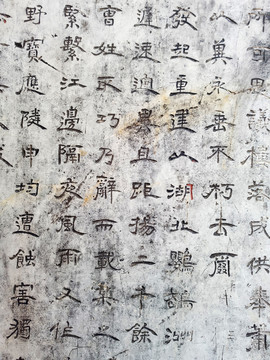 所議落成供奉蕭
以冀永垂不朽云爾
發起重建以湖北鸚鵡洲
遲速迥異且距揚二千餘
曹姓氏巧乃辭而載之
緊繫江邊隔夜風雨又作
野寶應陵申均遭蝕害獨